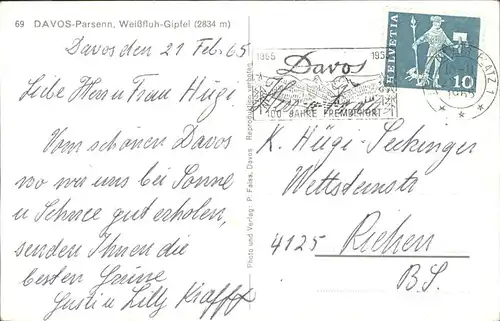 69 DAVOS-Parsenn, Weißfluh-Gipfel (2834 m)
Davos den 21 Feb. 65
Liebe Herrn Frau Hügi
Vom schönen Davos
wo wir uns bei Sonne
u Schnee gut erholen,
senden Ihnen die
besten Grüsse
Gusti u Lilly Krafft
Photo und Verlag: P. Faiss, Davos Reproduktion verboten
Davos
100 JAHRE FREMDENORT
HELVETIA
10
PLATZ 1
K. Hügi-Seckinger
Wettsteinstr
4125 Riehen
B.S.